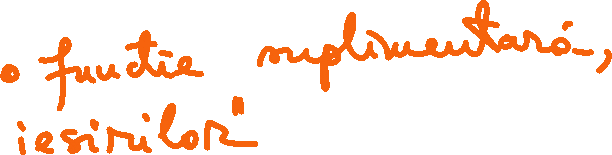 • functie suplimentară,
iesirilor"